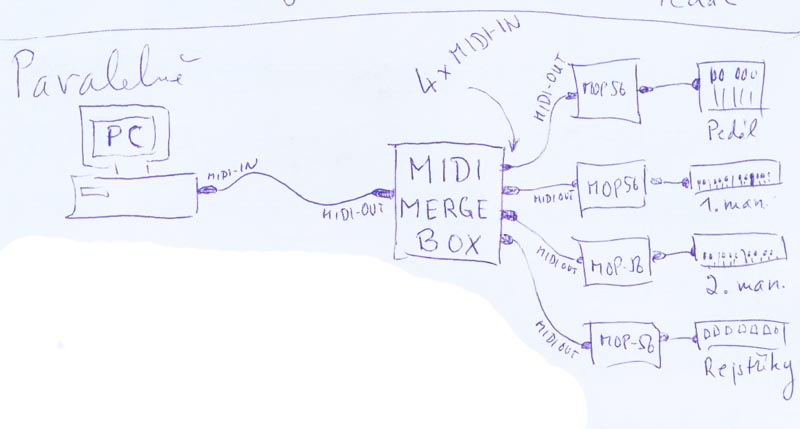 Paralelně
PC
MIDI-IN
MIDI-OUT
4x MIDI-IN
MIDI
MERGE
BOX
MIDI-OUT
MOP56
Pedál
MIDI OUT
MOP56
1. man.
MIDI OUT
MOP-56
2. man.
MIDI OUT
MOP-56
Rejstříky